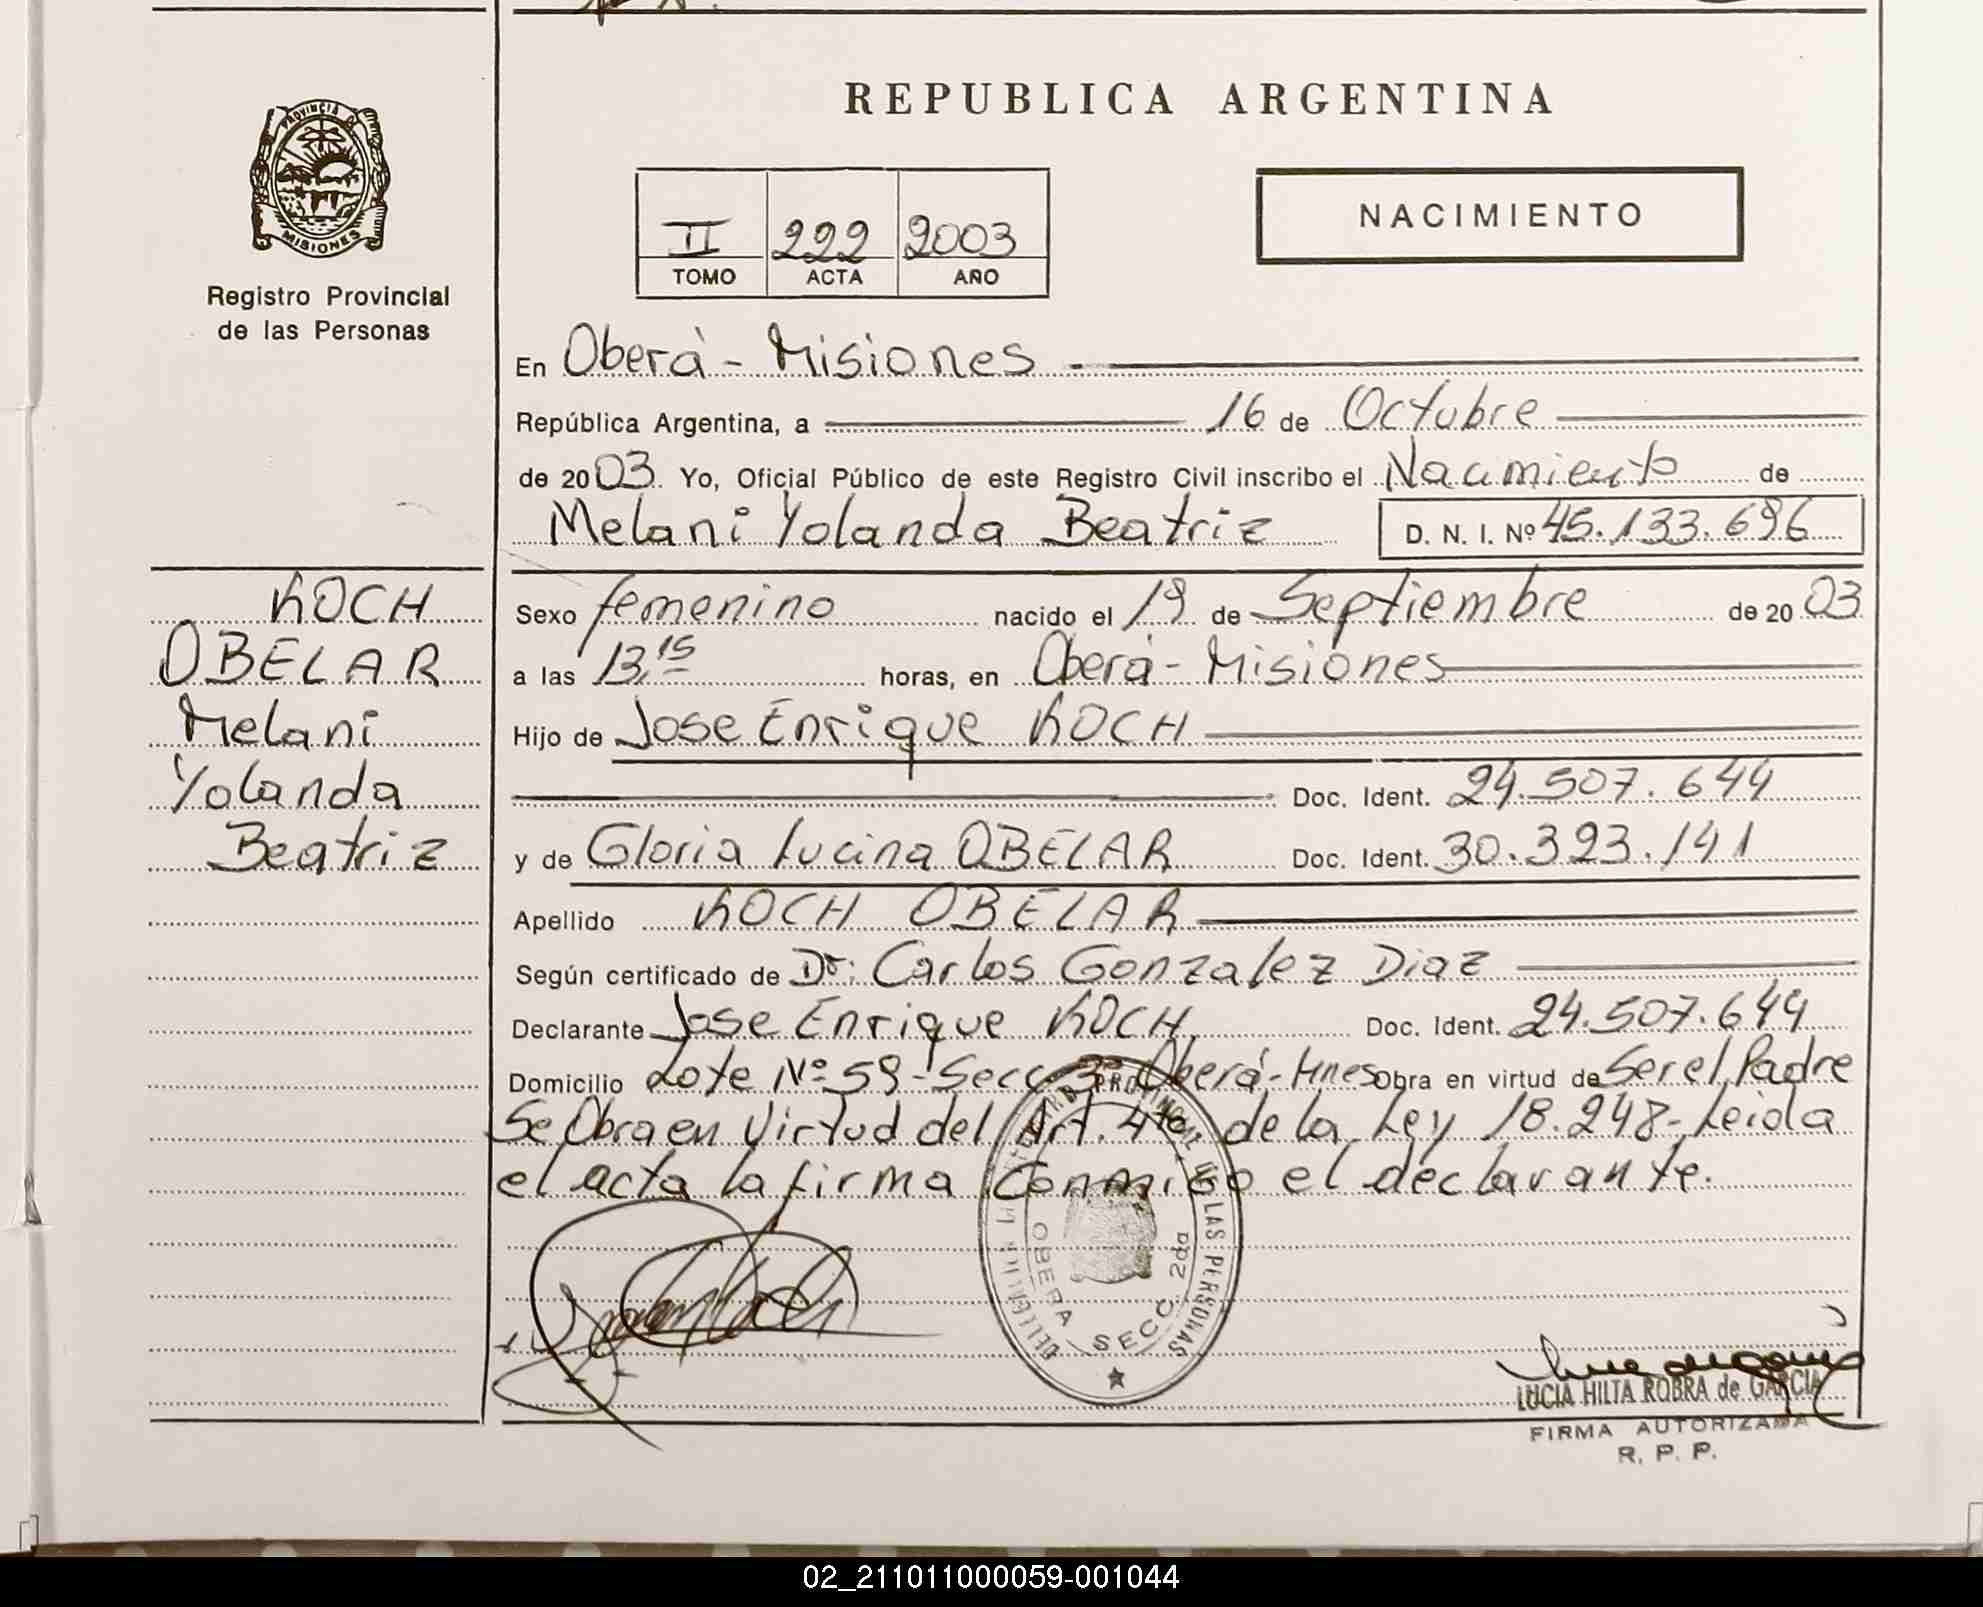 REPUBLICA ARGENTINA
PROVINCIA DE
MISIONES
Registro Provincial
de las Personas
II 222 2003
TOMO ACTA AÑO
NACIMIENTO
En Oberá - Misiones -
República Argentina, a 16 de Octubre
de 2003. Yo, Oficial Público de este Registro Civil inscribo el Nacimiento de
Melani Yolanda Beatriz D. N. I. Nº 45.133.696
KOCH
OBELAR
Melani
Yolanda
Beatriz
Sexo femenino nacido el 19 de Septiembre de 20 03
a las 13,15 horas, en Oberá - Misiones
Hijo de Jose Enrique KOCH
Doc. Ident. 24.507.644
y de Gloria Lucina OBELAR Doc. Ident. 30.393.141
Apellido KOCH OBELAR
Según certificado de Dr: Carlos Gonzalez Diaz
Declarante Jose Enrique KOCH Doc. Ident. 24.507.644
Domicilio Lote Nº 59 - Secc 3º Oberá - Mnes Obra en virtud de Ser el Padre
Se Obra en Virtud del Art. 4to de la Ley 18.248- Leida
el acta la firma Conmigo el declarante.
OBERA SECC. 2da
LAS PERSONAS
LUCIA HILTA ROBRA de GARCIA
FIRMA AUTORIZADA
R. P. P.
02_211011000059-001044